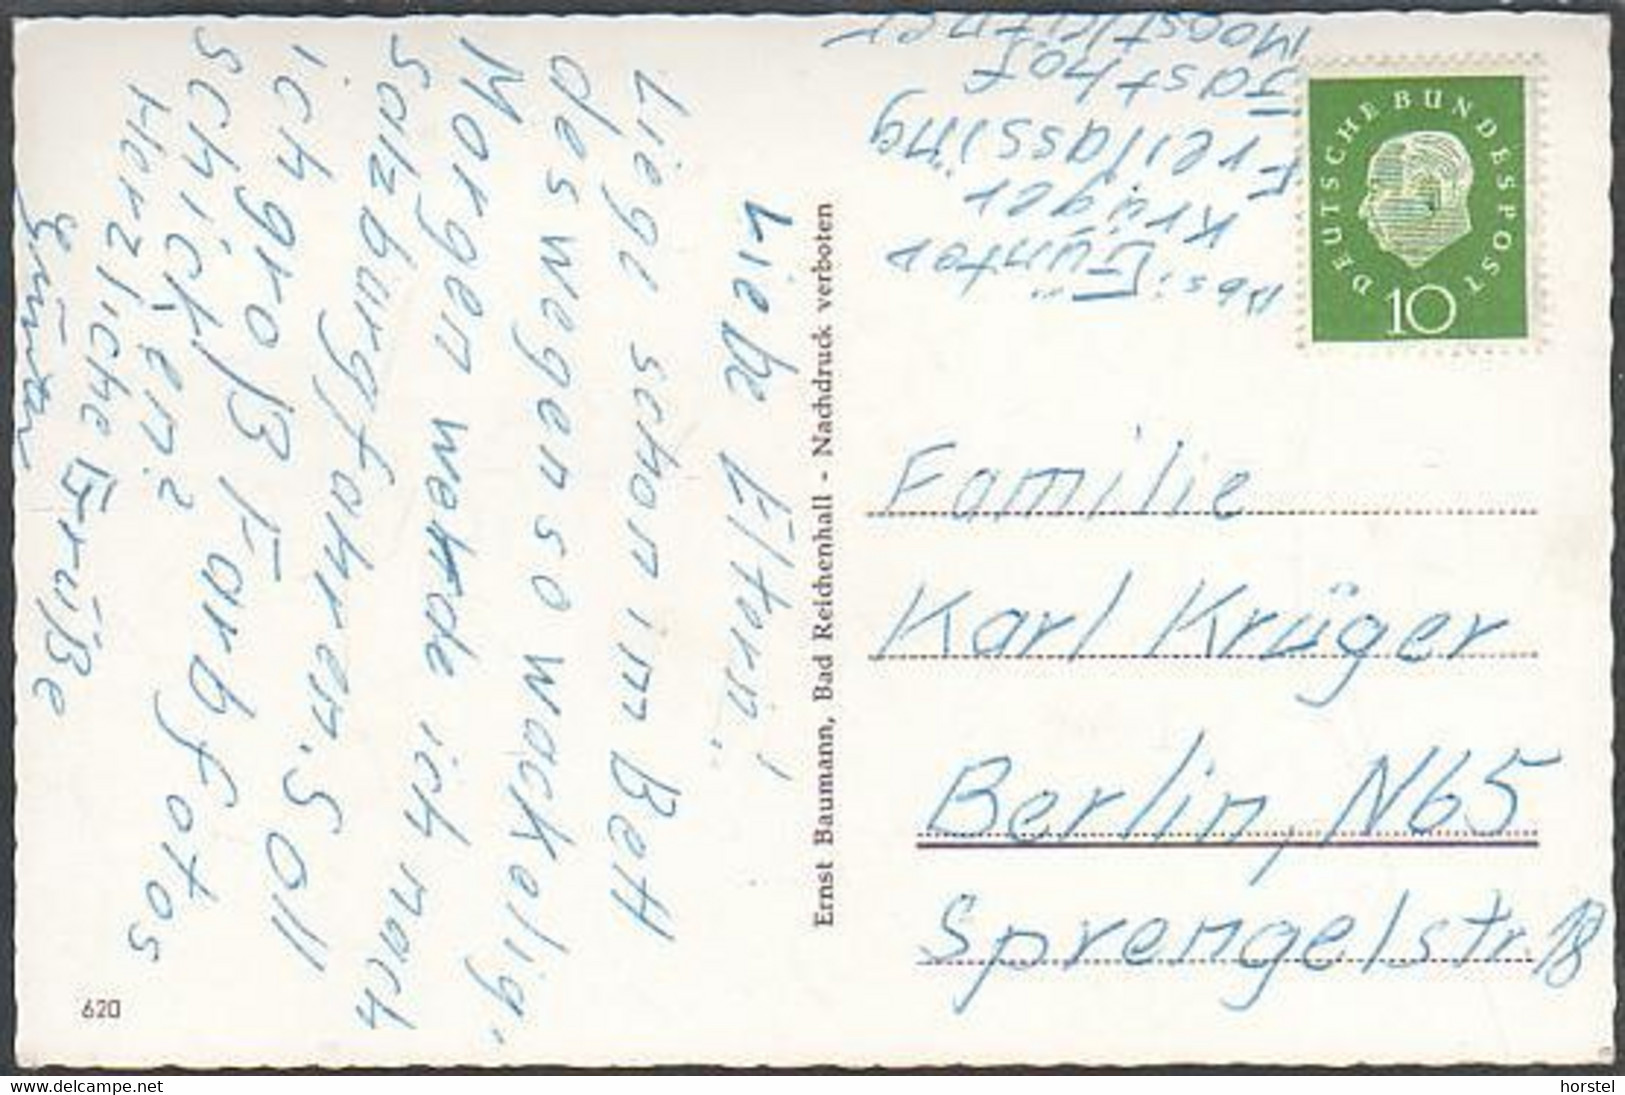 Liebe Eltern!
Liege schon im Bett
deswegen so wackelig.
Morgen werde ich nach
Salzburg fahren. Soll
ich groß Farbfotos
schicken?
Herzliche Grüße
Günter
Abs: Günter
Krüger
Freilassing
Gasthof
DEUTSCHE BUNDESPOST
10
Ernst Baumann, Bad Reichenhall - Nachdruck verboten
Familie
Karl Krüger
Berlin, N65
Sprengelstr. 18
620
www.delcampe.net
horstel